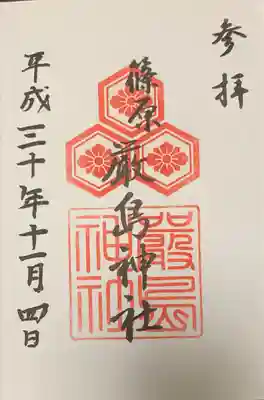 参拝
篠原
厳島神社
嚴島
神社
平成三十年十一月四日